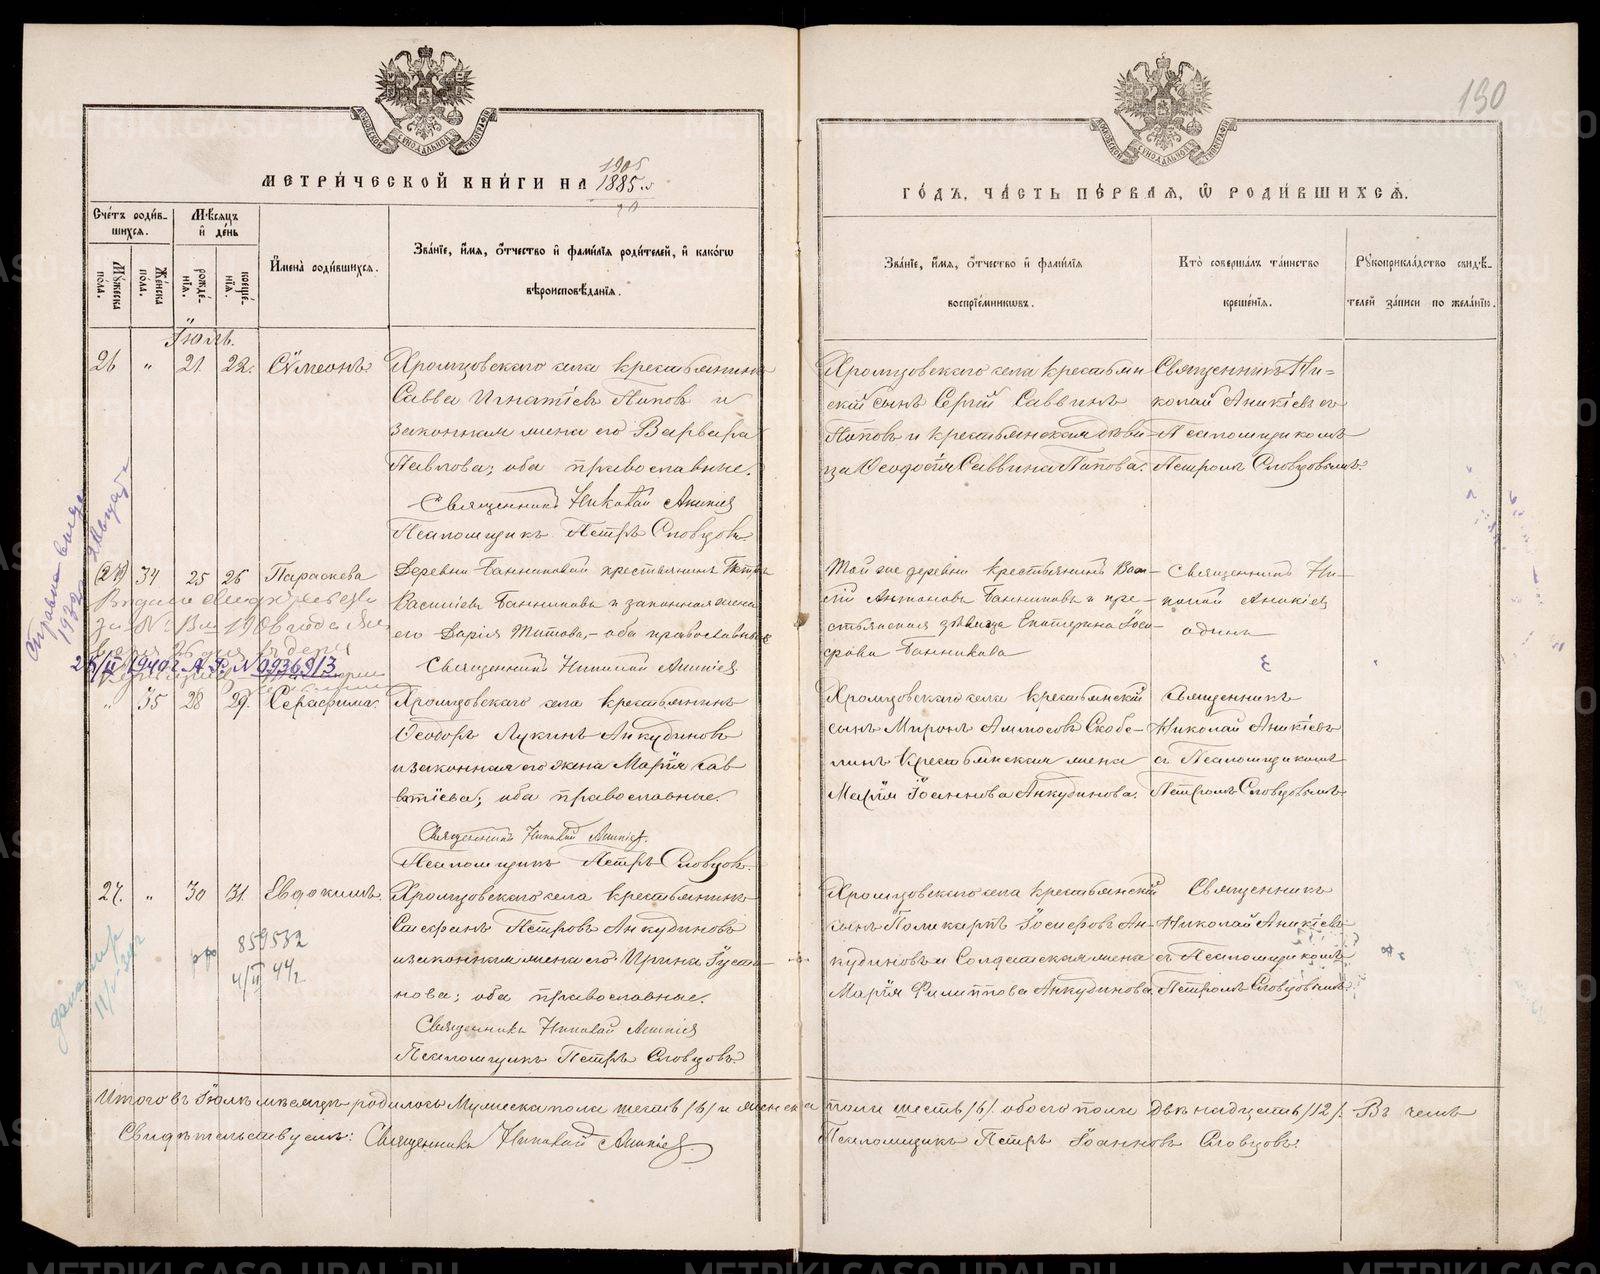 190
МЕТРИ́ЧЕСКОЙ КНИ́ГИ НА
1905
1885
ГО́ДЪ, ЧА́СТЬ ПЕ́РВАЯ, Ѿ РОДИ́ВШИХСЯ.
Сче́тъ роди́в-
шихся.
Мѣсяцъ
и҆ де́нь
Мꙋ́жеска по́ла.
Же́нска по́ла.
рожде́-
нїя.
креще́-
нїя.
И҆мена̀ роди́вшихся.
Зва́нїе, и҆́мя, ѻ҆́тчество и҆ фами́лїя роди́телей, и҆ како́гѡ
вѣроисповѣ́данїя.
Зва́нїе, и҆́мя, ѻ҆́тчество и҆ фами́лїя
воспрїе́мникѡвъ.
Кто̀ соверша́лъ та́инство
креще́нїя.
Рꙋкоприкла́дство свидѣ́-
телей за́писи по жела́нїю.
Іюль.
26 „ 21. 22. Сѵмеонъ.
Хромцовскаго села крестьянинъ
Савва Игнатіевъ Поповъ и
законная жена его Варвара
Павлова; оба православные.
Священникъ Николай Аникіев
Псаломщикъ Петръ Словцовъ.
Хромцовскаго села крестьян-
скій сынъ Сергій Саввинъ
Поповъ и крестьянская дѣви-
ца Ѳеодосія Саввина Попова.
Священникъ Ни-
колай Аникіевъ съ
Псаломщикомъ
Петромъ Словцовымъ.
(27) 34 25 26 Параскева
Деревни Банниковой крестьянинъ Петръ
Василіевъ Банниковъ и законная жена
его Дарія Титова, – оба православные
Священникъ Николай Аникіев
Той же деревни крестьянинъ Васи-
лій Антоновъ Банниковъ и кре-
стьянская дѣвица Екатерина
Банникова
Священникъ Ни-
колай Аникіев
одинъ
1932
1940 г. № 0936913
„ 35 28 29. Серафима.
Хромцовскаго села крестьянинъ
Ѳеодоръ Лукинъ Анкудиновъ
и законная его жена Марія Сав-
ватіева; оба православные.
Священникъ Николай Аникіев.
Псаломщикъ Петръ Словцовъ.
Хромцовскаго села крестьянскій
сынъ Миронъ Аммосовъ Скобе-
линъ крестьянская жена
Марія Іоаннова Анкудинова.
Священникъ
Николай Аникіевъ
съ Псаломщикомъ
Петромъ Словцовымъ
27. „ 30 31. Евдокимъ.
Хромцовскаго села крестьянинъ
Петровъ Анкудиновъ
и законная жена его Ирина Іусти-
нова; оба православные.
Священникъ Николай Аникіев
Псаломщикъ Петръ Словцовъ.
Хромцовскаго села крестьянскій
сынъ Поликарпъ Іосифовъ Ан-
кудиновъ и Солдатская жена
Марія Филиппова Анкудинова.
Священникъ
Николай Аникіевъ
съ Псаломщикомъ
Петромъ Словцовымъ.
859582
4/II 44 г.
Итого въ Іюлѣ мѣсяцѣ родилось Мужеска пола шесть /6/ и женска пола шесть /6/. обоего пола двѣнадцать /12/. Въ чемъ
Свидѣтельствуемъ: Священникъ Николай Аникіев. Псаломщикъ Петръ Іоанновъ Словцовъ.